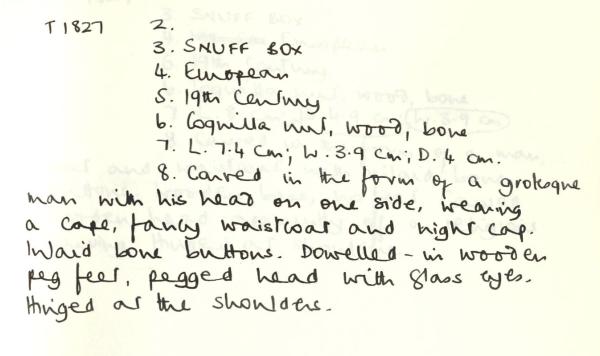 T1827 2.
3. SNUFF BOX
4. European
5. 19th Century
6. Coquilla nut, wood, bone
7. L. 7.4 cm; W. 3.9 cm; D. 4 cm.
8. Carved in the form of a grotesque
man with his head on one side, wearing
a cape, fancy waistcoat and night cap.
Inlaid bone buttons. Dowelled-in wooden
peg feet, pegged head with glass eyes.
Hinged at the shoulders.